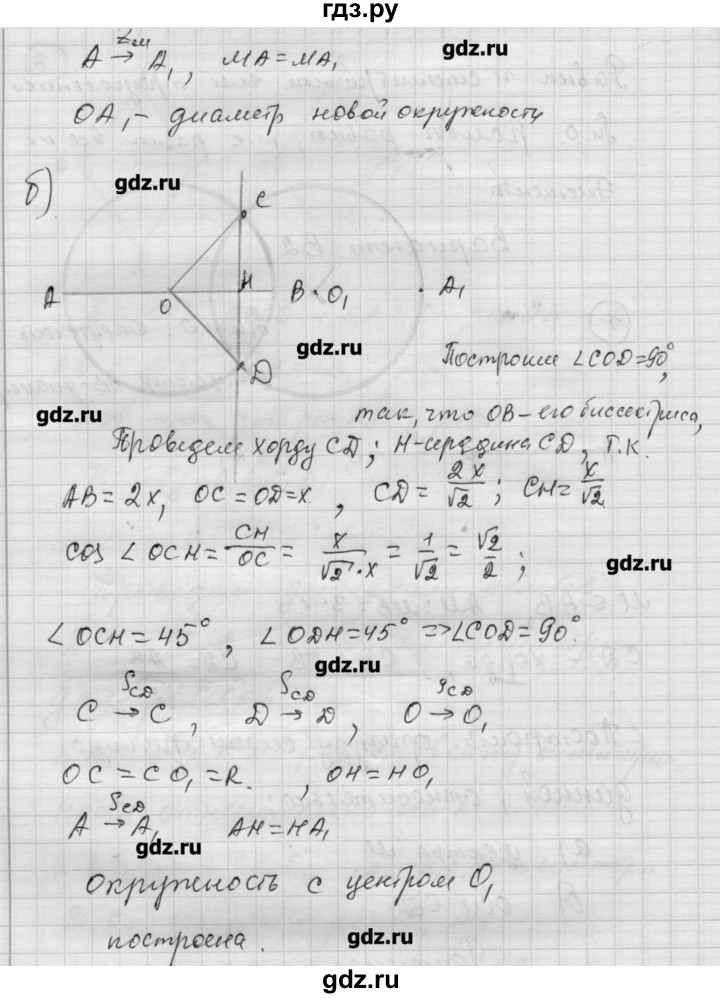 гдз.ру
A →(Zм) A₁, MA = MA₁ gdz.ru
OA₁ – диаметр новой окружности
gdz.ru
б)
C
A O H B O₁ A₁
gdz.ru D
Построим ∠COD = 90°,
gdz.ru
так, что OB – его биссектриса,
Проведем хорду CD; H – середина CD, т.к.
AB = 2x, OC = OD = x, CD = 2x/√2; CH = x/√2
cos ∠OCH = CH/OC = x/(√2·x) = 1/√2 = √2/2; gdz.ru
∠OCH = 45°, ∠ODH = 45° ⇒ ∠COD = 90°.
gdz.ru
C →(S_CD) C, D →(S_CD) D, O →(S_CD) O₁
OC = CO₁ = R, OH = HO₁
A →(S_CD) A₁ AH = HA₁
gdz.ru
Окружность с центром O₁
построена. gdz.ru
gdz.ru